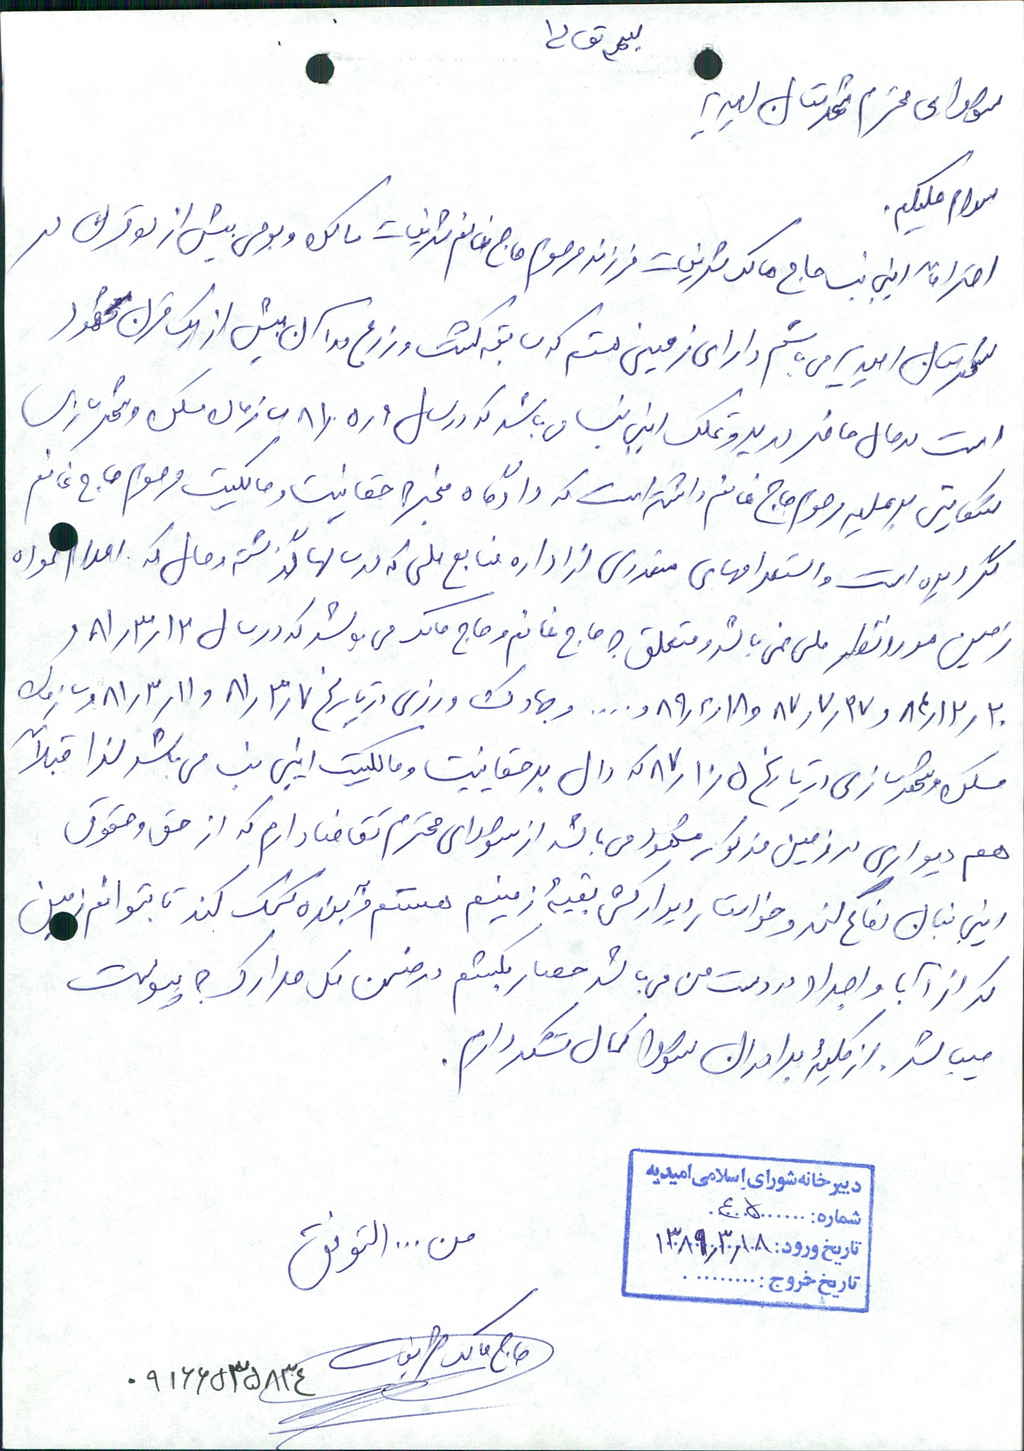 بسمه تعالی
شورای محترم شهرستان امیدیه
سلام علیکم.
احتراماً اینجانب حاج مالک شریفات فرزند مرحوم حاج غانم شریفات مالک و بومی بیش از دو قرن در
شهرستان امیدیه می باشم دارای زمینی هستم که سابقه کشت و زرع در آن بیش از یک قرن
است در حال حاضر در ید و تملک اینجانب می باشد که در سال سازمان مسکن و شهرسازی
شکایتی بر علیه مرحوم حاج غانم داشته است که دادگاه منجر به حقانیت و مالکیت مرحوم حاج غانم
گردیده است و استعدامهای متعددی از اداره منابع ملی که در سالها گذشته و حال که اعلام نموده
زمین مورد نظر ملی نمی باشد و متعلق به حاج غانم و حاج مالک می باشد که در سال ۸۱٫۳٫۱۳ و
۸۴٫۱۲٫۲۰ و ۸۷٫۷٫۲۷ و ۸۹٫۲٫۱۸ و .... و جهاد کشاورزی در تاریخ ۸۱٫۳٫۷ و ۸۱٫۳٫۱۱ و سازمان
مسکن و شهرسازی در تاریخ ۸۷٫۱۰٫۵ که دال بر حقانیت و مالکیت اینجانب می باشد لذا قبلاً
هم دیواری در زمین مذکور مشهود می باشد از شورای محترم تقاضا دارم که از حق و حقوق
اینجانبان دفاع کند و خواستار دیوارکشی بقیهٔ زمینم هستم و به بنده کمک کند تا بتوانم زمین
که از آبا و اجداد در دست من می باشد حصار بکشم در ضمن کل مدارک به پیوست
میباشد. از کلیهٔ برادران شورا کمال تشکر دارم.
دبیرخانه شورای اسلامی امیدیه
شماره: ......۴۰۵.
تاریخ ورود: ۱۳۸۹٫۳٫۰۸
تاریخ خروج: .........
من ... التوفیق
حاج مالک شریفات
۰۹۱۶۶۵۳۵۸۳۴